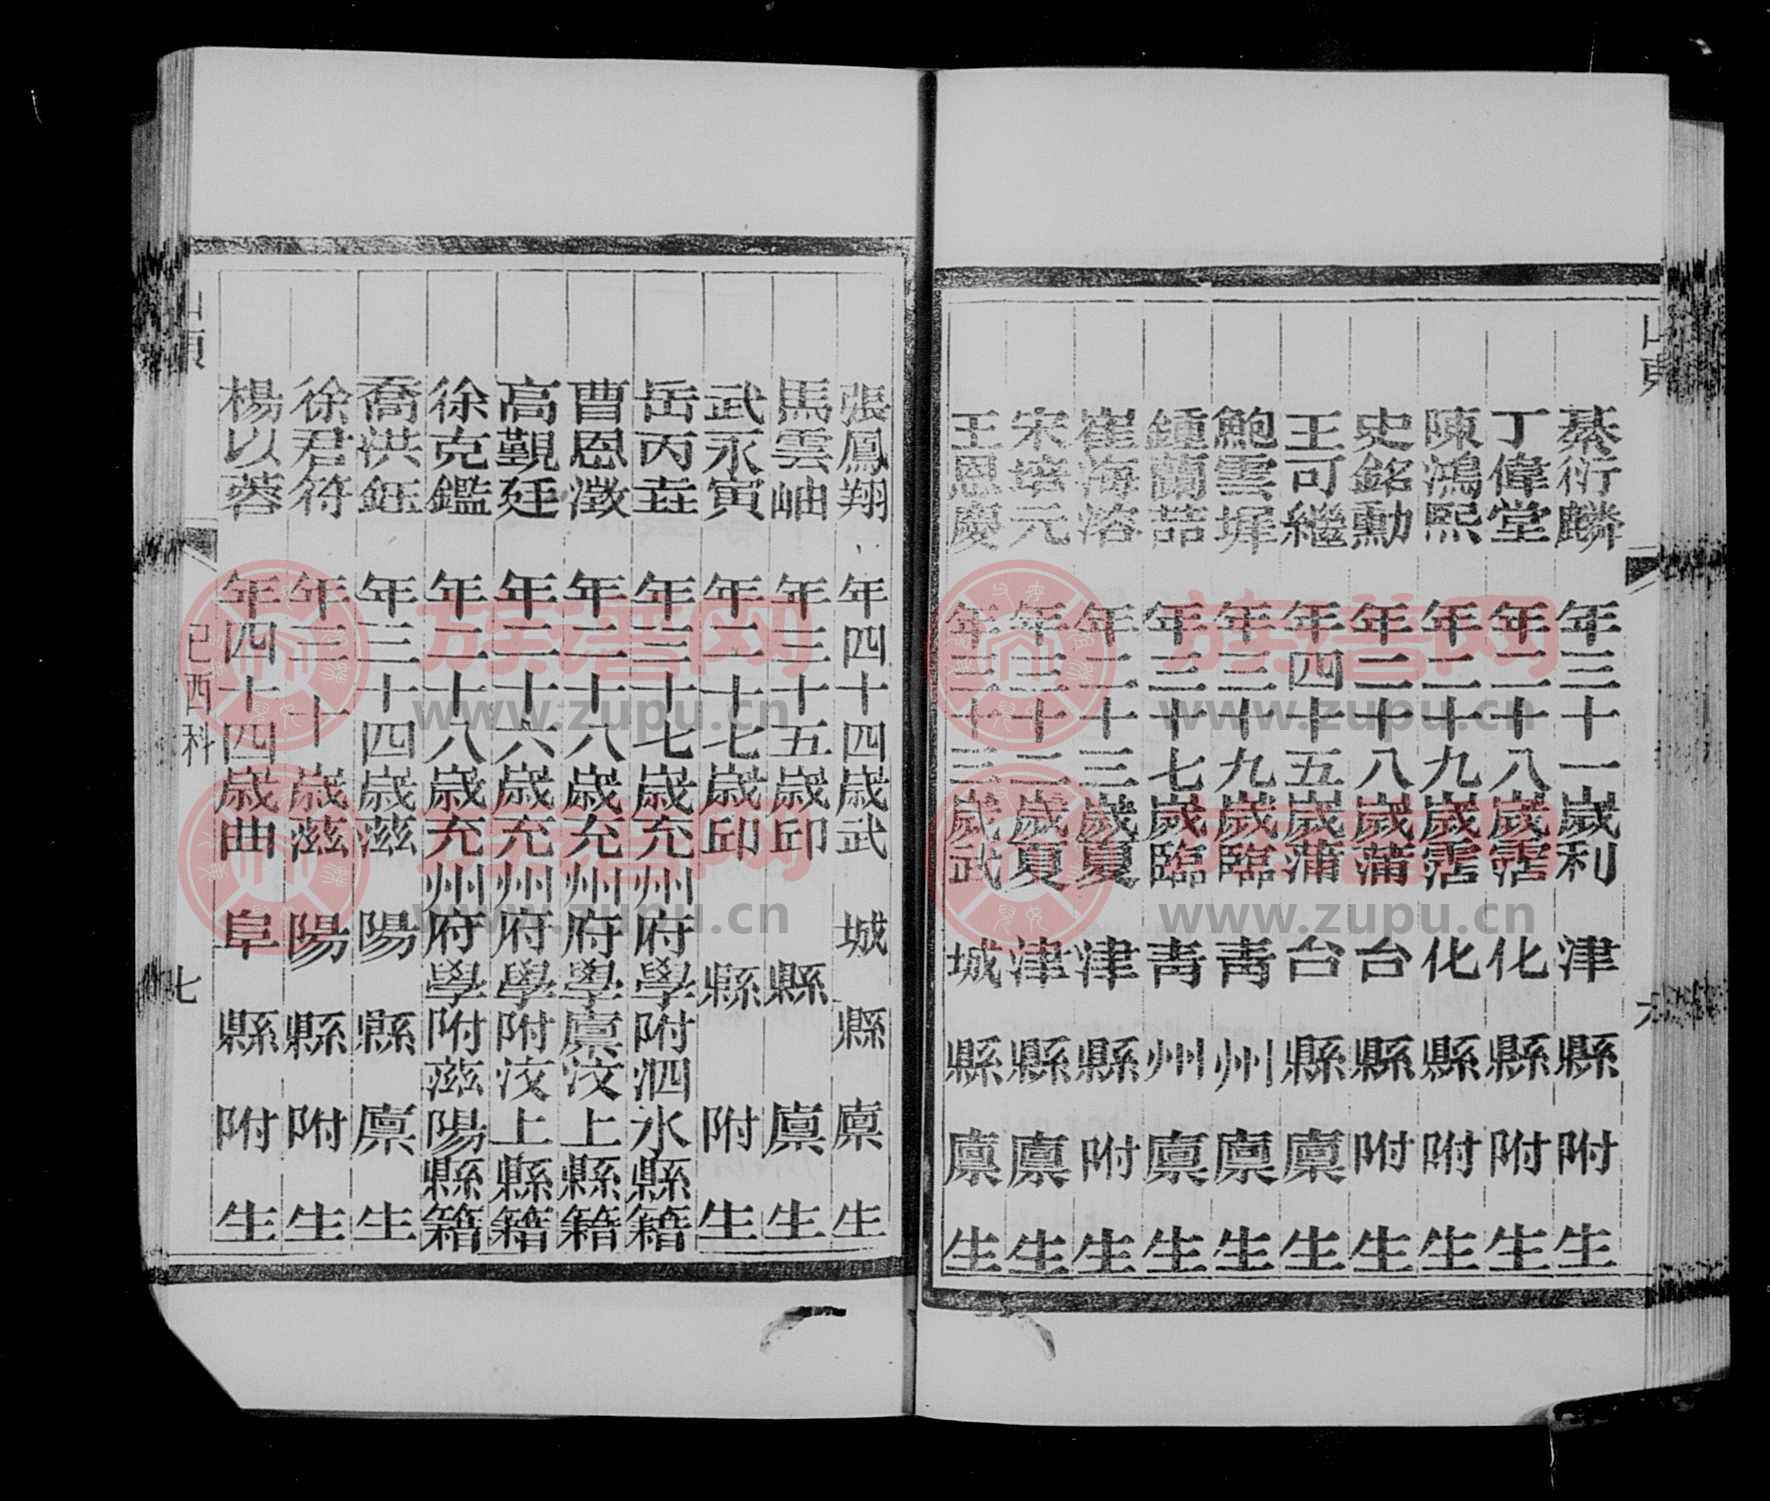 山東
六
綦衍麟 年三十一歲利津縣附生
丁偉堂 年二十八歲霑化縣附生
陳鴻熙 年二十九歲霑化縣附生
史銘勳 年二十八歲蒲台縣附生
王可繼 年四十五歲蒲台縣廩生
鮑雲墀 年三十九歲臨青州廩生
鍾蘭喆 年三十七歲臨青州廩生
崔海洛 年二十三歲夏津縣附生
宋華元 年三十二歲夏津縣廩生
王恩慶 年三十三歲武城縣廩生
張鳳翔 年四十四歲武城縣廩生
馬雲岫 年三十五歲邱縣廩生
武永寅 年二十七歲邱縣附生
岳丙垚 年三十七歲充州府學附泗水縣籍
曹恩瀓 年二十八歲充州府學廩汶上縣籍
高覲廷 年二十六歲充州府學附汶上縣籍
徐克鑑 年二十八歲充州府學附滋陽縣籍
喬洪鈺 年三十四歲滋陽縣廩生
徐君符 年三十歲滋陽縣附生
楊以蓉 年四十四歲曲阜縣附生
己酉科
七
族谱网
www.zupu.cn
族谱网
www.zupu.cn
www.zupu.cn
www.zupu.cn